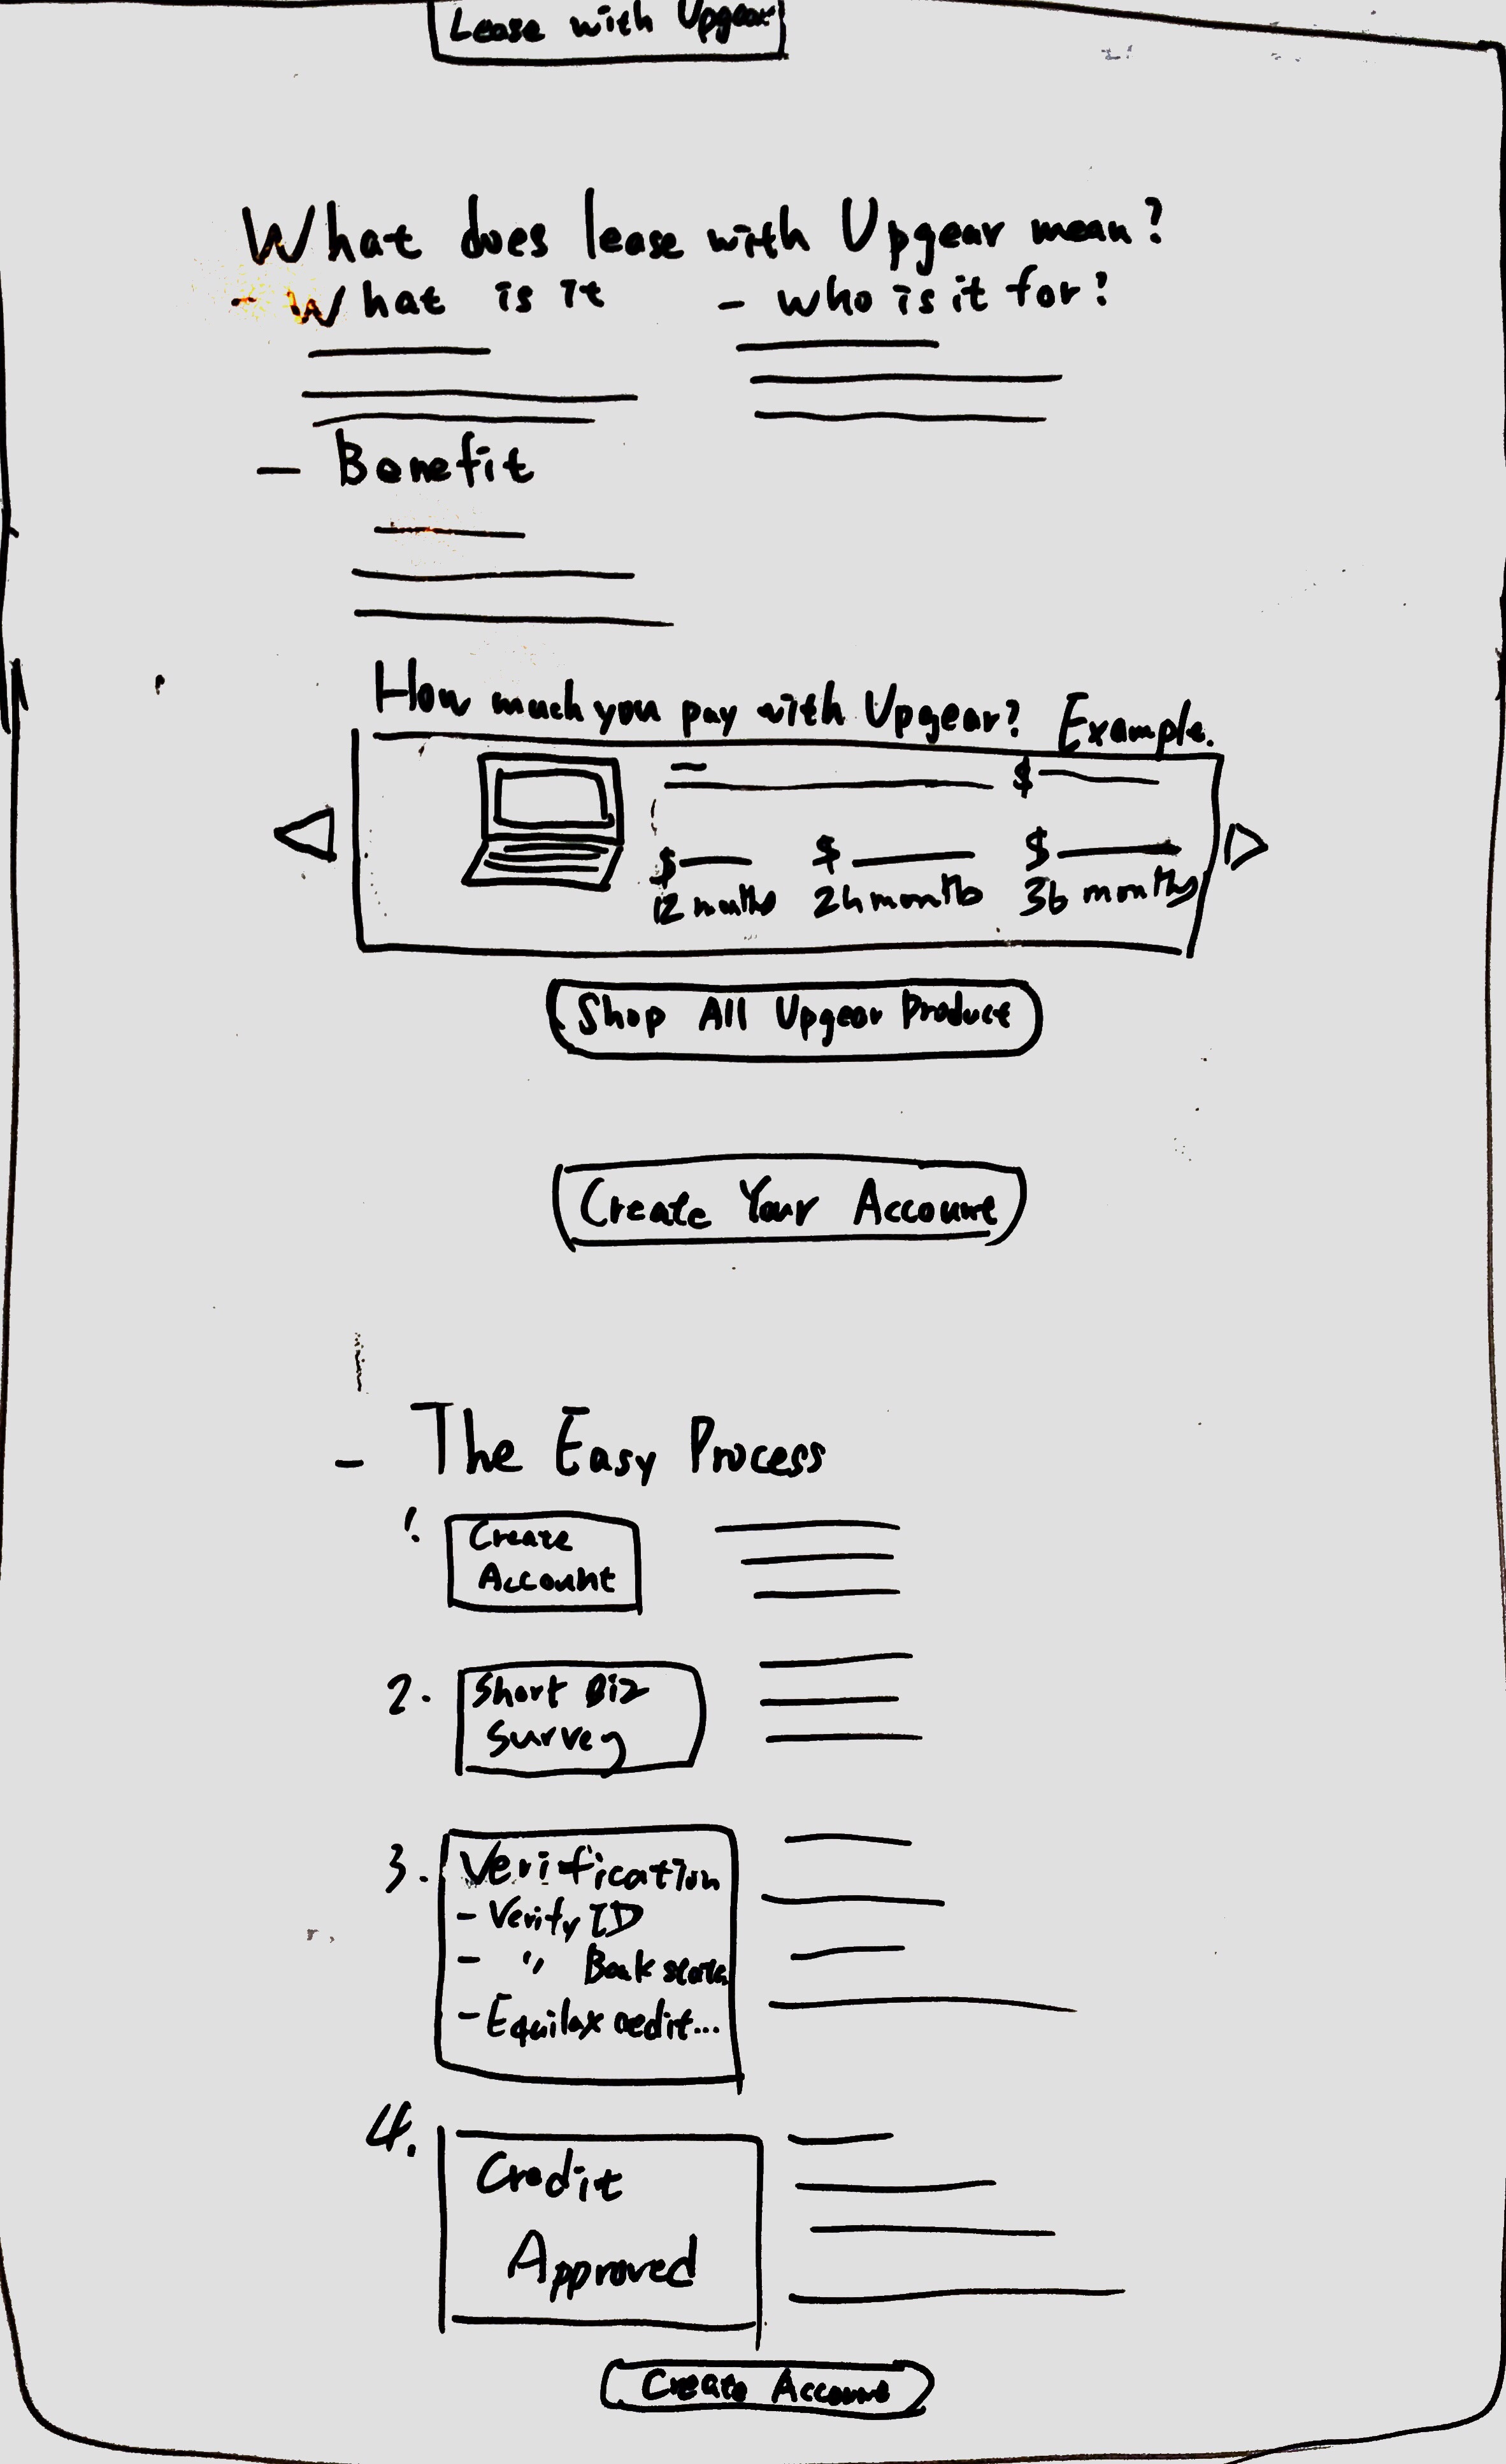 Lease with Upgear
What does lease with Upgear mean?
- What is it - who is it for?
- Benefit
How much you pay with Upgear? Example.
$
$ $ $
12 months 24 months 36 months
Shop All Upgear Product
Create Your Account
- The Easy Process
1. Create
Account
2. Short Biz
Survey
3. Verification
- Verify ID
- " Bank
- Equifax credit...
4. Credit
Approved
Create Account